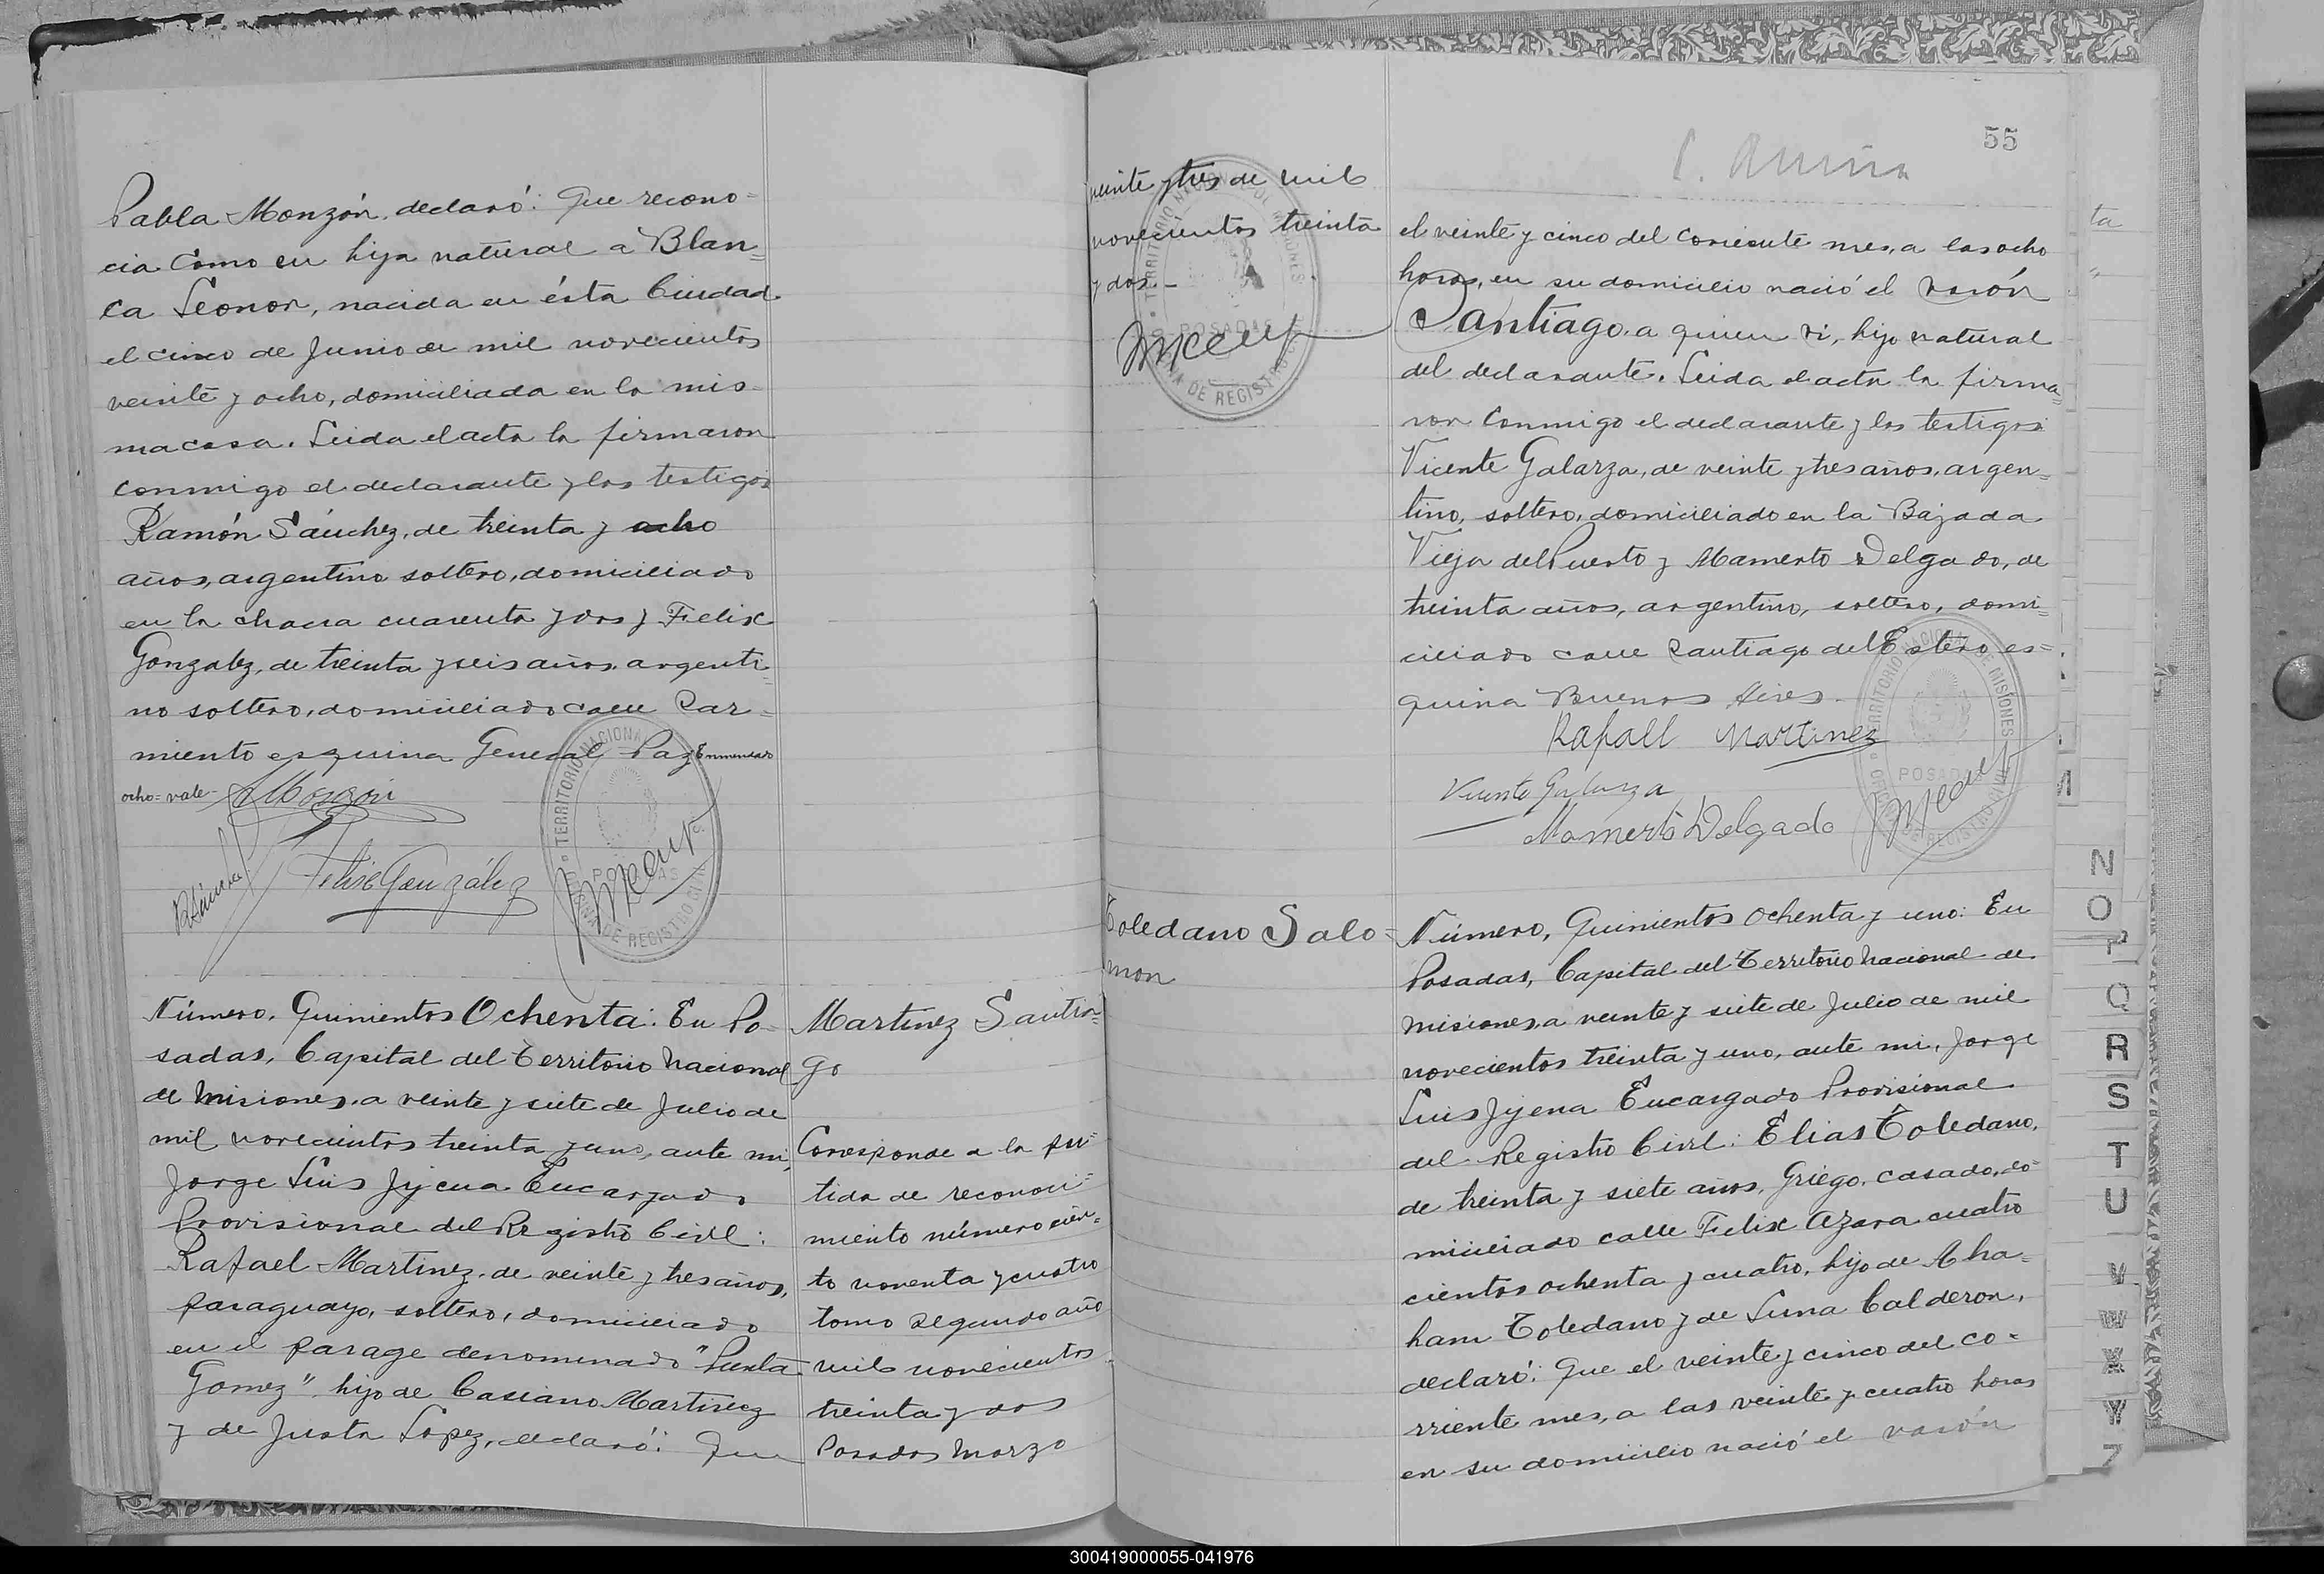 Pabla Monzón, declaró: Que recono=
cia como su hija natural a Blan=
ca Leonor, nacida en ésta Ciudad
el cinco de Junio de mil novecientos
veinte y ocho, domiciliada en la mis=
ma casa. Leida el acta la firmaron
conmigo el declarante y los testigos
Ramón Sánchez, de treinta y ocho
años, argentino soltero, domiciliado
en la chacra cuarenta y dos y Felix
Gonzalez, de treinta y seis años, argenti=
no soltero, domiciliado calle Sar=
miento esquina General Paz Enmendado
ocho=vale-
Monzón
RSánchez
Felix González
TERRITORIO NACIONAL DE MISIONES
POSADAS
OFICINA DE REGISTRO CIVIL
Número, Quinientos Ochenta: En Po=
sadas, Capital del Territorio Nacional
de Misiones, a veinte y siete de Julio de
mil novecientos treinta y uno, ante mi,
Jorge Luis Jijena Encargado
Provisional del Registro Civil:
Rafael Martinez, de veinte y tres años,
paraguayo, soltero, domiciliado
en el parage denominado "Punta
Gomez" hijo de Casiano Martinez
y de Justa Lopez, declaró: Que
Martinez Santia=
go
Corresponde a la par=
tida de reconoci=
miento número cien=
to noventa y cuatro
tomo segundo año
mil novecientos
treinta y dos
Posadas Marzo
veinte y tres de mil
novecientos treinta
y dos.-
TERRITORIO NACIONAL DE MISIONES
POSADAS
OFICINA DE REGISTRO CIVIL
55
el veinte y cinco del corriente mes, a las ocho
horas, en su domicilio nació el varón
Santiago, a quien vi, hijo natural
del declarante. Leida el acta la firma=
ron conmigo el declarante y los testigos
Vicente Galarza, de veinte y tres años, argen=
tino, soltero, domiciliado en la Bajada
Vieja del Puerto y Mamerto Delgado, de
treinta años, argentino, soltero, domi=
ciliado calle Santiago del Estero es=
quina Buenos Aires.
Rafaell Martinez
Vicente Galarza
Mamerto Delgado
TERRITORIO NACIONAL DE MISIONES
POSADAS
OFICINA DE REGISTRO CIVIL
Toledano Salo=
mon
Número, Quinientos Ochenta y uno: En
Posadas, Capital del Territorio Nacional de
Misiones, a veinte y siete de Julio de mil
novecientos treinta y uno, ante mi, Jorge
Luis Jijena Encargado Provisional
del Registro Civil: Elias Toledano,
de treinta y siete años, Griego, casado, do=
miciliado calle Felix Azara cuatro
cientos ochenta y cuatro, hijo de Abra=
ham Toledano y de Luna Calderon,
declaró: Que el veinte y cinco del co=
rriente mes, a las veinte y cuatro horas
en su domicilio nació el varón
ta
"
M
N
O
P
Q
R
S
T
U
V
W
X
Y
Z
300419000055-041976